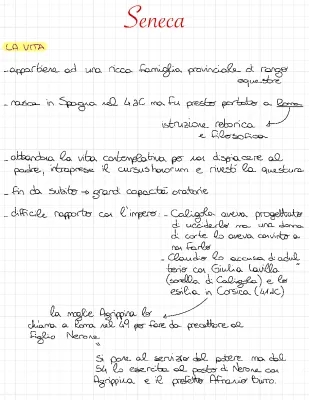 Seneca
LA VITA
- appartiene ad una ricca famiglia provinciale di rango
equestre
- nasce in Spagna nel 4 aC ma fu presto portato a Roma
istruzione retorica
e filosofica
- abbandona la vita contemplativa per non dispiacere al
padre, intraprese il cursus honorum e rivestì la questura
- fin da subito → grandi capacità oratorie
- difficile rapporto con l'impero: - Caligola aveva progettato
di ucciderlo ma una donna
di corte lo aveva convinto a
non farlo
- Claudio lo accusa di adul
terio con Giulia Livilla
(sorella di Caligola) e lo
esilia in Corsica (41 dC)
la moglie Agrippina lo
chiama a Roma nel 49 per fare da precettore al
figlio Nerone
si pone al servizio del potere ma dal
54 lo esercita al posto di Nerone con
Agrippina e il prefetto Afranio Burro.